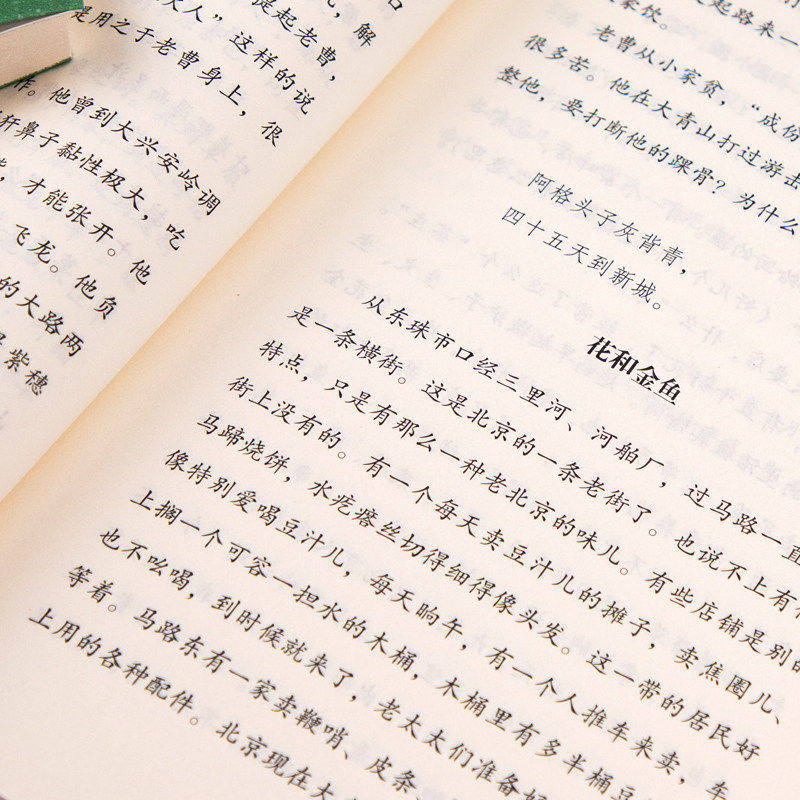 口
，解
提起老曹，
大人”这样的说
是用之于老曹身上，很
作。他曾到大兴安岭调
犴鼻子黏性极大，吃
能，才能张开。他
飞龙。他负
的大路两
是紫穗
起路来一
家饮。
老曹从小家贫，“成份
很多苦。他在大青山打过游击
整他，要打断他的踝骨？为什么
阿格头子灰背青，
四十五天到新城。
花和金鱼
从东珠市口经三里河、河舶厂，过马路一直
是一条横街。这是北京的一条老街了。也说不上有什
特点，只是有那么一种老北京的味儿。有些店铺是别的
街上没有的。有一个每天卖豆汁儿的摊子，卖焦圈儿、
马蹄烧饼，水疙瘩丝切得细得像头发。这一带的居民好
像特别爱喝豆汁儿，每天晌午，有一个人推车来卖，车
上搁一个可容一担水的木桶，木桶里有多半桶豆
也不吆喝，到时候就来了，老太太们准备好
等着。马路东有一家卖鞭哨、皮条、
上用的各种配件。北京现在大